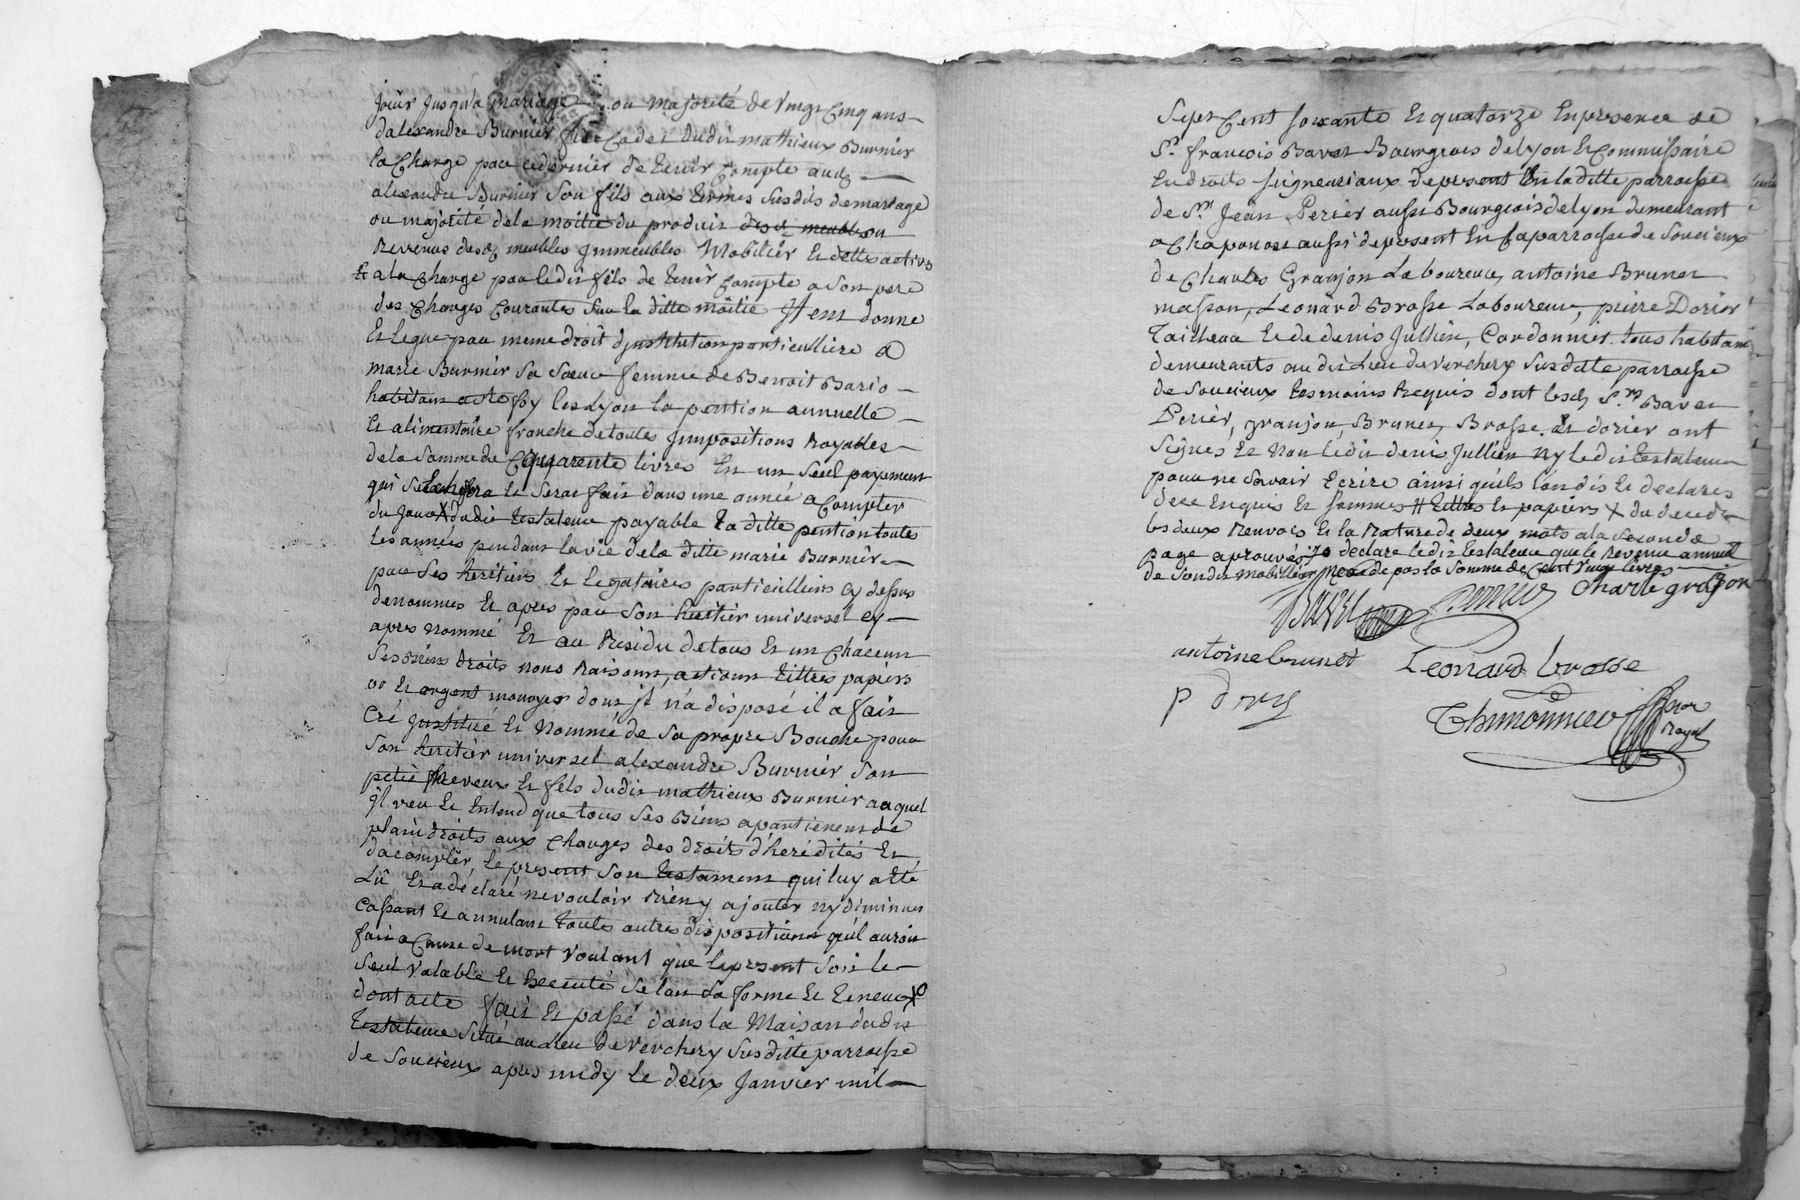 jouir jusqu'a mariage ou majorité de vingt cinq ans
dalexandre Burnier fils Cadet dudit mathieux Burnier
la Charge par cedernier de tenir Compte aud
alexandre Burnier son fils aux termes susdits demariage
ou majotité dela moitié du produit desd meubles ou
Revenus desd meubles jmmeubles Mobilier et dette actives
et ala charge par ledit fils de tenir Compte a son pere
des Charges Courantes sur la ditte moitié Jtem donne
Et legue par meme droit djnstitution particulliere a
marie Burnier sa soeur femme de Benoit Bario
habitant foy les Lyon la pention annuelle
Et alimentaire franche detoutes jmpositions Royalles
dela somme de quarente livres en un seul payement
qui et sera fait dans une année a Compter
du jour X dudit testateur payable la ditte pention toutes
les années pendant la vie dela ditte marie Burnier
par ses heritiers et legataires particulliers cy dessus
denommés et apres par son heritier universel cy
apres nommé Et au Residu detous et un chacun
ses biens droits noms Raisons, actions tittres papiers
or et argent monoyes dont jl n'a disposé il a fait
Cré jnstitué et Nommé de sa propre Bouche pour
son heritier universel alexandre Burnier son
petit Neveux et fils dudit mathieux Burnier auquel
jl veu et Entend que tous ses Biens apartienent de
plain droits aux Charges des droits d'herédités Et
dacomplir le present son testament qui luy a eté
Lû et a déclaré nevouloir Rien y ajouter ny diminuer
Cassant et annulant toutes autres dispositions quil auroit
fait a Cause de mort voulant que lepresent soit le
seul valable et Executé selon sa forme et teneur
dont acte fait et passé dans la Maison dudit
testateur situé au Lieu de verchery susditte parroisse
de Soucieux apres midy le deux Janvier mil
Sept Cent soixante et quatorze En presence de
Sr. francois Bavet Bourgeois delyon et Commissaire
En droits seigneuriaux depresent en laditte parroisse
de Sr. Jean Perier aussi Bourgeois delyon demeurant
a Chaponost aussi depresent en saparroisse de Soucieux
de Charles Granjon Laboureur, antoine Brunet
masson, Leonard Brosse Laboureur, pierre Dorier
Tailleur et de denis Jullien, Cordonnier tous habitans
demeurants audit Lieu de verchery susditte parroisse
de Soucieux temoins Requis dont lesd Srs Bavet
Perier, granjon, Brunet, Brosse et dorier ont
signés et Non ledit denis Jullien ny ledit testateur
pour ne savoir Ecrire ainsi quils lont dit et declarés
dece Enquis et sommés tittres et papiers X du deceds
les deux Renvois et la Rature de deux mots ala seconde
page aprouvés declare ledit testateur que le Revenu annuel
de sondit mobillier pas la somme de Cent vingt livres
Bavet Perrier Charle grajon
antoine brunet Leonard brosse
p dory
Thimonnier Royal